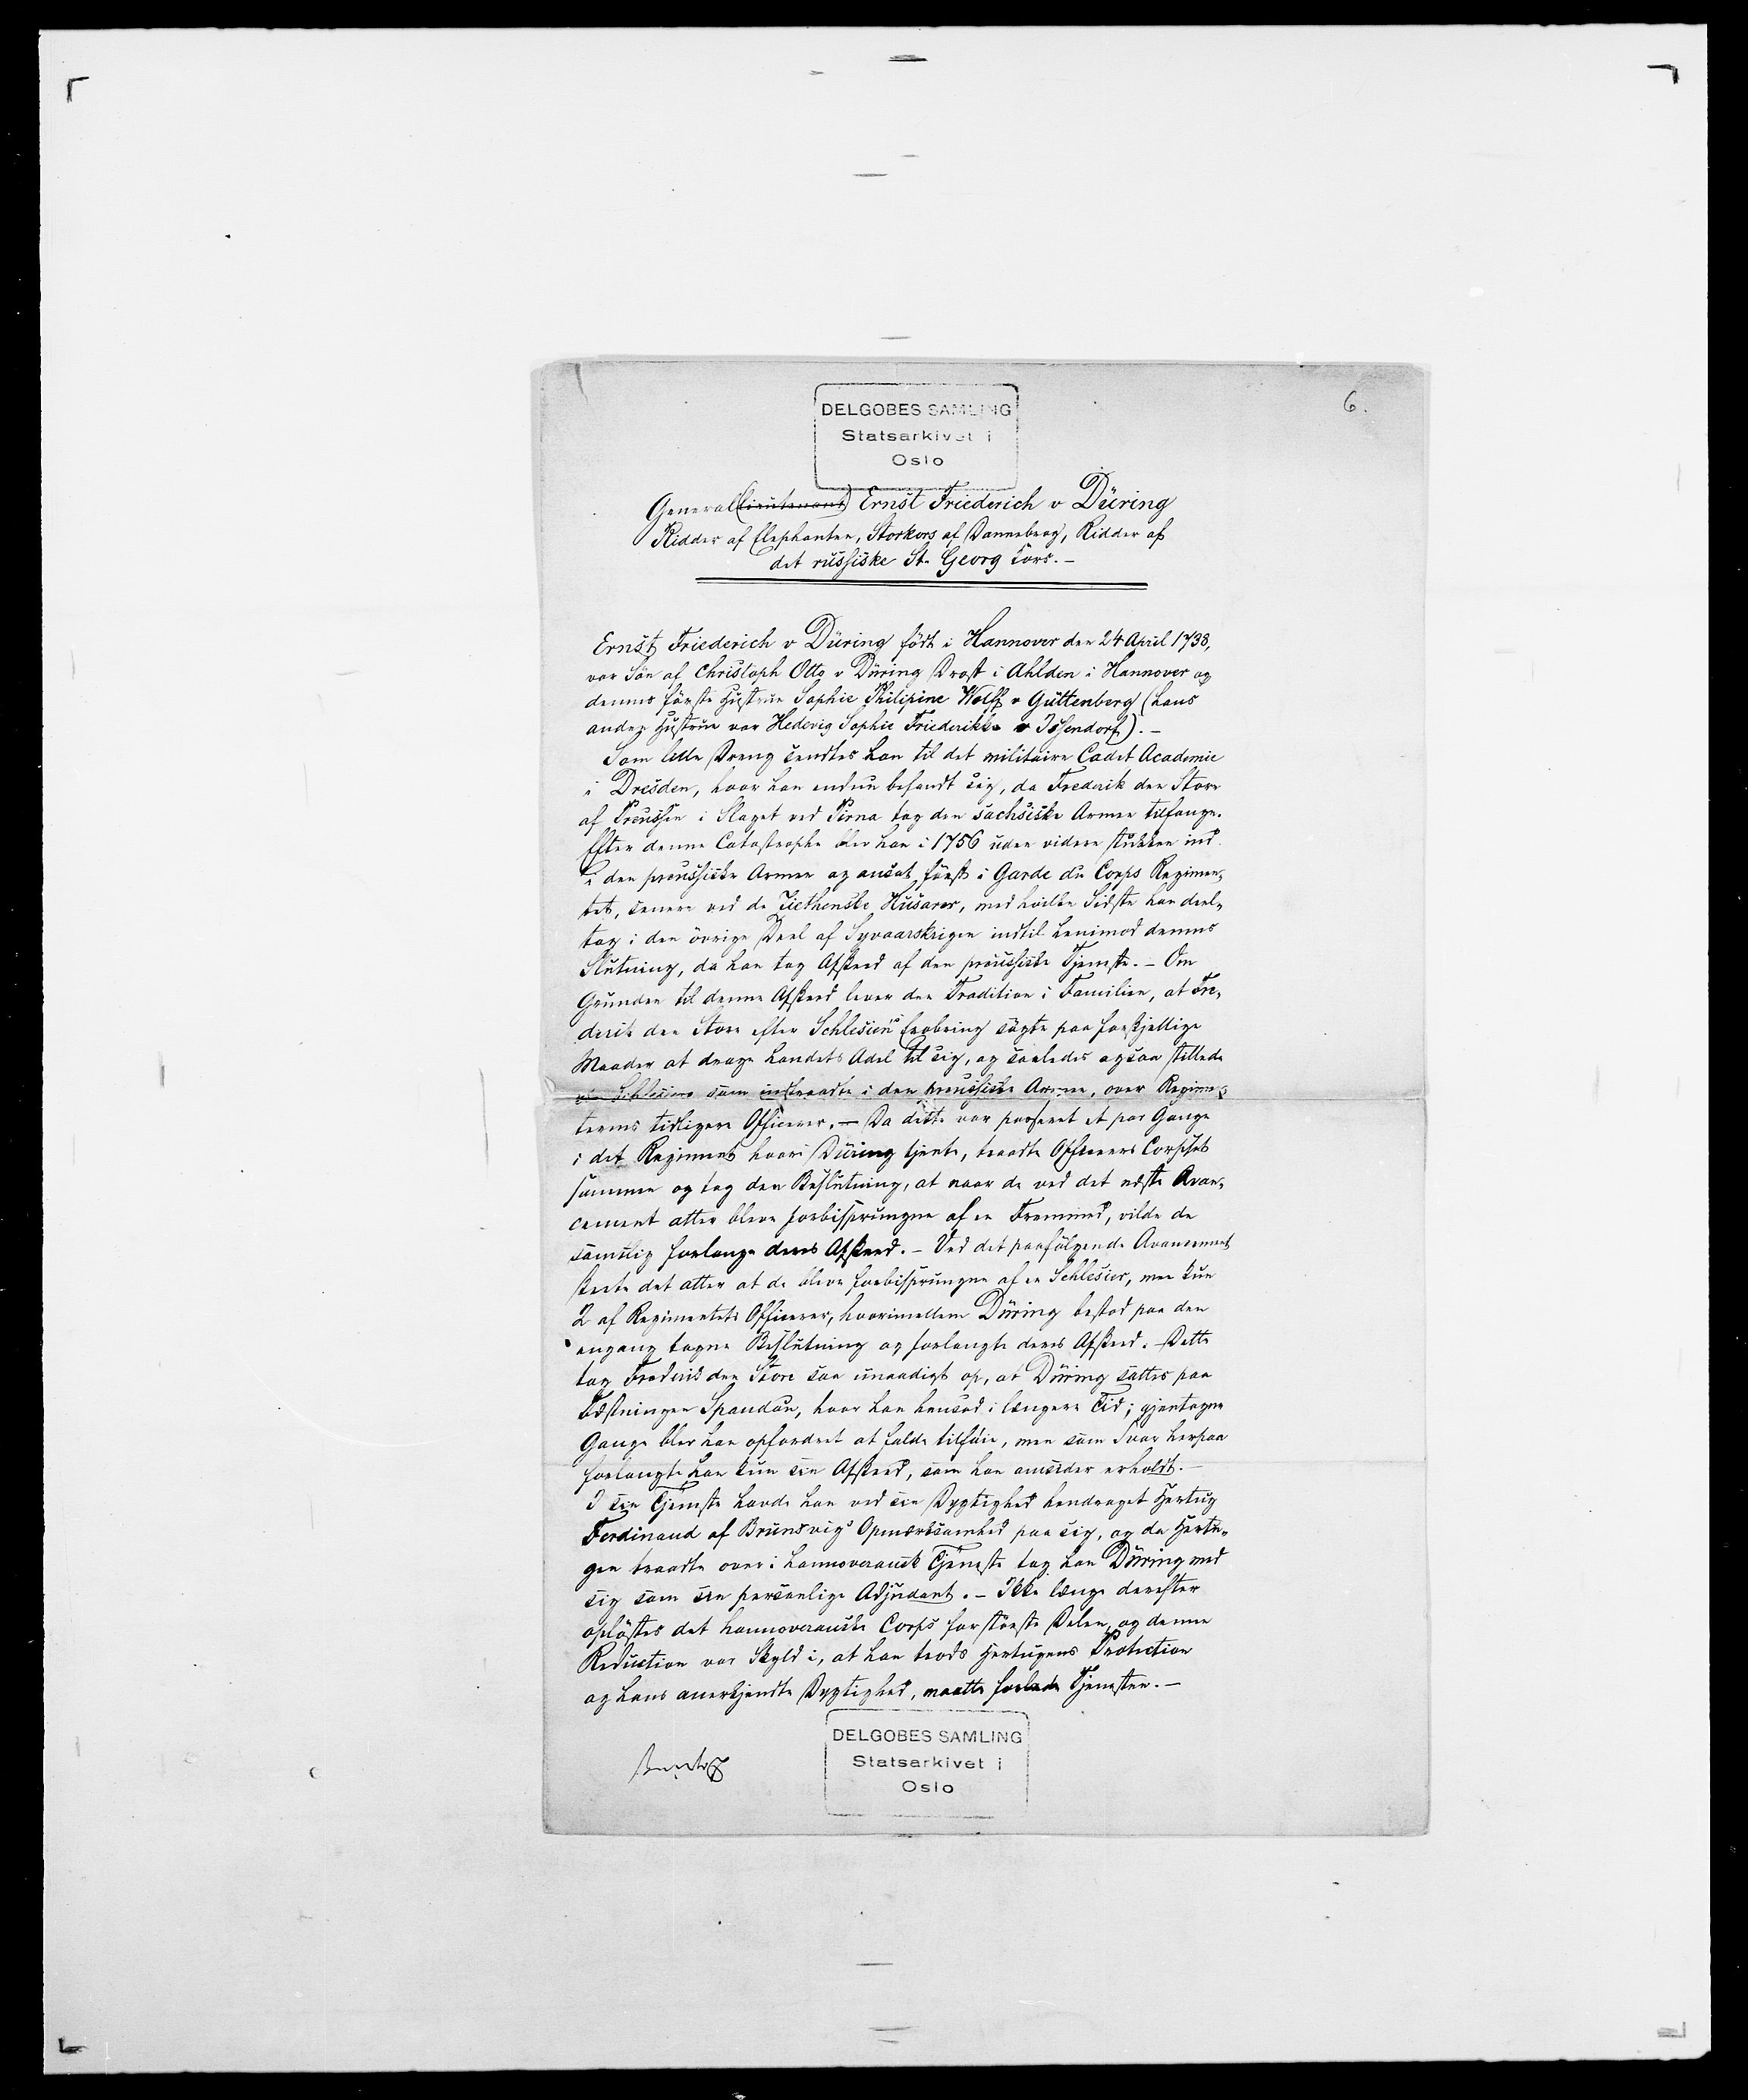 6.
DELGOBES SAMLING
Statsarkivet i
Oslo
General(lieutenant) Ernst Friederich v Düring
Ridder af Elephanten, Storkors af Danneberg, Ridder af
det russiske St. Georg Kors.-
Ernst Friederich v Düring født i Hannover den 24 April 1738,
var Søn af Christoph Otto v Düring Drost i Ahlden i Hannover og
dennes første Hustrue Sophie Philipine Wolff v Guttenberg (hans
anden Hustrue var Hedevig Sophie Friederikke v Issendorf).-
Som lille Dreng sendtes han til det militaire Cadet Academie
i Dresden, hvor han endnu befandt sig, da Frederik den Store
af Preussen i Slaget ved Pirna tog den sachsiske Armee tilfange.
Efter denne Catastrophe blev han i 1756 uden videre stukken ind
i den preussiske Armee og ansat først i Garde du Corps Regimen-
tet, senere ved de Ziethenske Husarer, med hvilke Sidste han deel-
tog i den øvrige Deel af Syvaarskrigen indtil henimod dennes
Slutning, da han tog Afsked af den preussiske Tjeneste.- Om
Grunden til denne Afsked lever den Tradition i Familien, at Fre-
derik den Store efter Schlesiens Erobring søgte paa forskjellige
Maader at drage Landets Adel til sig, og saaledes ogsaa stillede
Schlesiere som indtraadte i den preussiske Armee, over Regimen-
ternes tidligere Officerer.- Da dette var passeret et par Gange
i det Regiment hvori Düring tjente, traadte Officeers Corpset
sammen og tog den Beslutning, at naar de ved det næste Avan-
cement atter bleve forbisprungne af en Fremmed, vilde de
samtlig forlange deres Afsked.- Ved det paafølgende Avancement
skete det atter at de bleve forbisprungne af en Schlesier, men kun
2 af Regimentets Officerer, hvorimellem Düring bestod paa den
engang tagne Beslutning og forlangte deres Afsked.- Dette
tog Frederik den Store saa unaadigt op, at Düring sattes paa
Fæstningen Spandau, hvor han hensad i længere Tid; gjentagne
Gange blev han opfordret at falde tilføie, men som Svar herpaa
forlangte han kun sin Afsked, som han omsider erholdt.-
I sin Tjeneste havde han ved sin Dygtighed hendraget Hertug
Ferdinand af Brunsvigs Opmærksomhed paa sig, og da Hertu-
gen traadte over i hannoveransk Tjeneste tog han Düring med
sig som sin personlige Adjudant.- Ikke længe derefter
opløstes det hannoveranske Corps for største Delen, og denne
Reduction var Skyld i, at han trods Hertugens Protection
og hans anerkjendte Dygtighed, maatte forlade Tjenesten.-
DELGOBES SAMLING
Statsarkivet i
Oslo